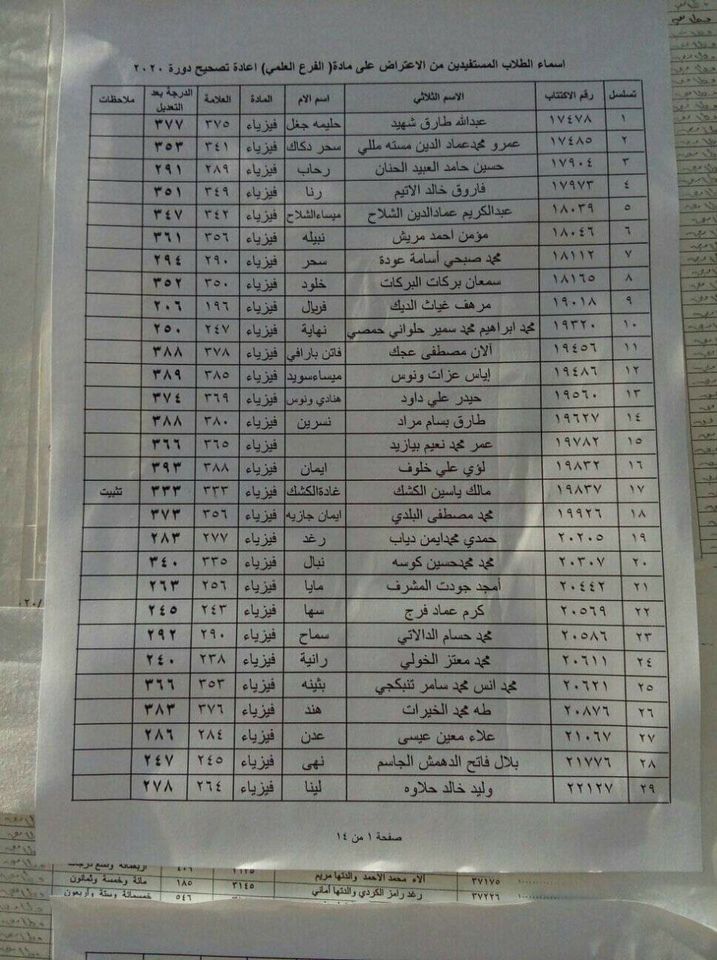 اسماء الطلاب المستفيدين من الاعتراض على مادة( الفرع العلمي) اعادة تصحيح دورة ٢٠٢٠
تسلسل رقم الاكتتاب الاسم الثلاثي اسم الام المادة العلامة الدرجة بعد التعديل ملاحظات
١ ١٧٤٧٨ عبدالله طارق شهيد حليمه جغل فيزياء ٣٧٥ ٣٧٧
٢ ١٧٤٨٥ عمرو محمدعماد الدين مسته مللي سحر دكاك فيزياء ٣٤١ ٣٥٣
٣ ١٧٩٠٤ حسين حامد العبيد الحنان رحاب فيزياء ٢٨٩ ٢٩١
٤ ١٧٩٧٣ فاروق خالد الاتيم رنا فيزياء ٣٤٩ ٣٥١
٥ ١٨٠٣٩ عبدالكريم عمادالدين الشلاح ميساءالشلاح فيزياء ٣٤٢ ٣٤٧
٦ ١٨٠٤٦ مؤمن احمد مريش نبيله فيزياء ٣٥٦ ٣٦١
٧ ١٨١١٢ محمد صبحي أسامة عودة سحر فيزياء ٢٩٠ ٢٩٤
٨ ١٨١٦٥ سمعان بركات البركات خلود فيزياء ٣٥٠ ٣٥٢
٩ ١٩٠١٨ مرهف غياث الديك فريال فيزياء ١٩٦ ٢٠٦
١٠ ١٩٣٢٠ محمد ابراهيم محمد سمير حلواني حمصي نهاية فيزياء ٢٤٧ ٢٥٠
١١ ١٩٤٥٦ آلان مصطفى عجك فاتن بارافي فيزياء ٣٧٨ ٣٨٨
١٢ ١٩٤٨٦ إياس عزات ونوس ميساءسويد فيزياء ٣٨٥ ٣٨٩
١٣ ١٩٥٦٠ حيدر علي داود هنادي ونوس فيزياء ٣٦٩ ٣٧٤
١٤ ١٩٦٢٧ طارق بسام مراد نسرين فيزياء ٣٨٠ ٣٨٨
١٥ ١٩٧٨٢ عمر محمد نعيم بيازيد فيزياء ٣٦٥ ٣٦٦
١٦ ١٩٨٣٢ لؤي علي خلوف ايمان فيزياء ٣٨٨ ٣٩٣
١٧ ١٩٨٣٧ مالك ياسين الكشك غادةالكشك فيزياء ٣٣٣ ٣٣٣ تثبيت
١٨ ١٩٩٢٦ محمد مصطفى البلدي ايمان جازيه فيزياء ٣٥٦ ٣٧٣
١٩ ٢٠٢٠٥ حمدي محمدايمن دياب رغد فيزياء ٢٧٧ ٢٨٣
٢٠ ٢٠٣٠٧ محمد محمدحسين كوسه نبال فيزياء ٣٣٥ ٣٤٠
٢١ ٢٠٤٤٢ أمجد جودت المشرف مايا فيزياء ٢٥٦ ٢٦٣
٢٢ ٢٠٥٦٩ كرم عماد فرج سها فيزياء ٢٤٣ ٢٤٥
٢٣ ٢٠٥٨٦ محمد حسام الدالاتي سماح فيزياء ٢٩٠ ٢٩٢
٢٤ ٢٠٦١١ محمد معتز الخولي رانية فيزياء ٢٣٨ ٢٤٠
٢٥ ٢٠٦٢١ محمد انس محمد سامر تنبكجي بثينه فيزياء ٣٥٣ ٣٦٦
٢٦ ٢٠٨٧٦ طه محمد الخيرات هند فيزياء ٣٧٦ ٣٨٣
٢٧ ٢١٠٦٧ علاء معين عيسى عدن فيزياء ٢٨٤ ٢٨٦
٢٨ ٢١٧٧٦ بلال فاتح الدهمش الجاسم نهى فيزياء ٢٤٥ ٢٤٧
٢٩ ٢٢١٢٧ وليد خالد حلاوه لينا فيزياء ٢٦٤ ٢٧٨
صفحة ١ من ١٤
٣٧١٧٥ آلاء محمد الاحمد والدتها مريم
٣٧٢٢٦ رغد رامز الكردي والدتها أماني ٣١٤٥ ١٨٥ مائة وخمسة وثمانون
٥٤٦ خمسمائة وستة وأربعون